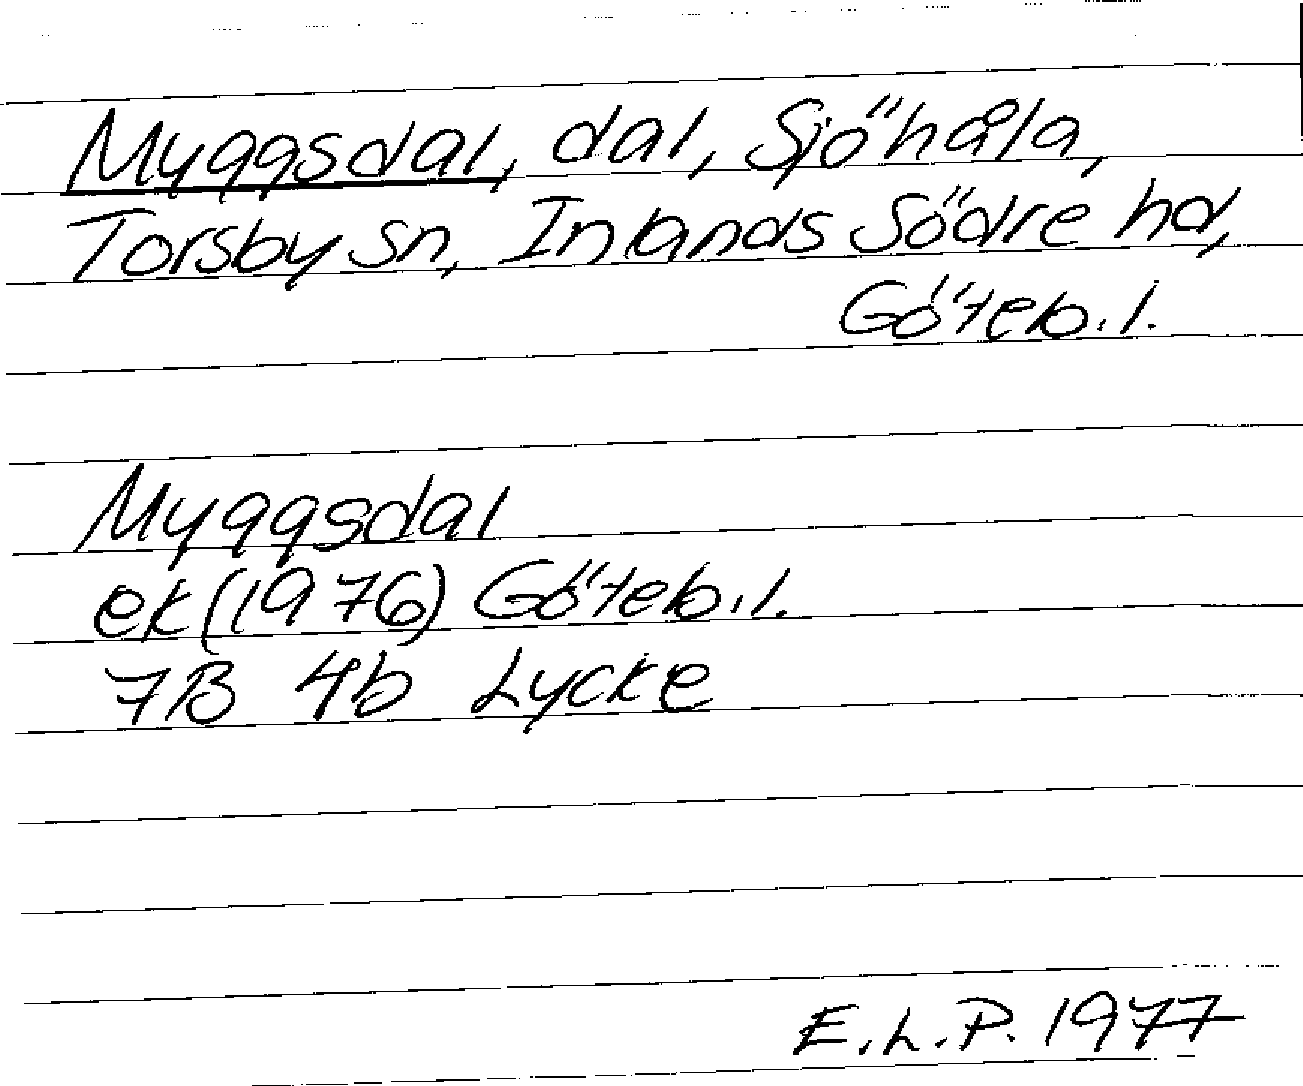 Myggsdal, dal, Sjöhåla,
Torsby sn, Inlands Södre hd,
Göteb. l.
Myggsdal
ek (1976) Göteb. l.
7B 4b Lycke
E.L.P. 1977